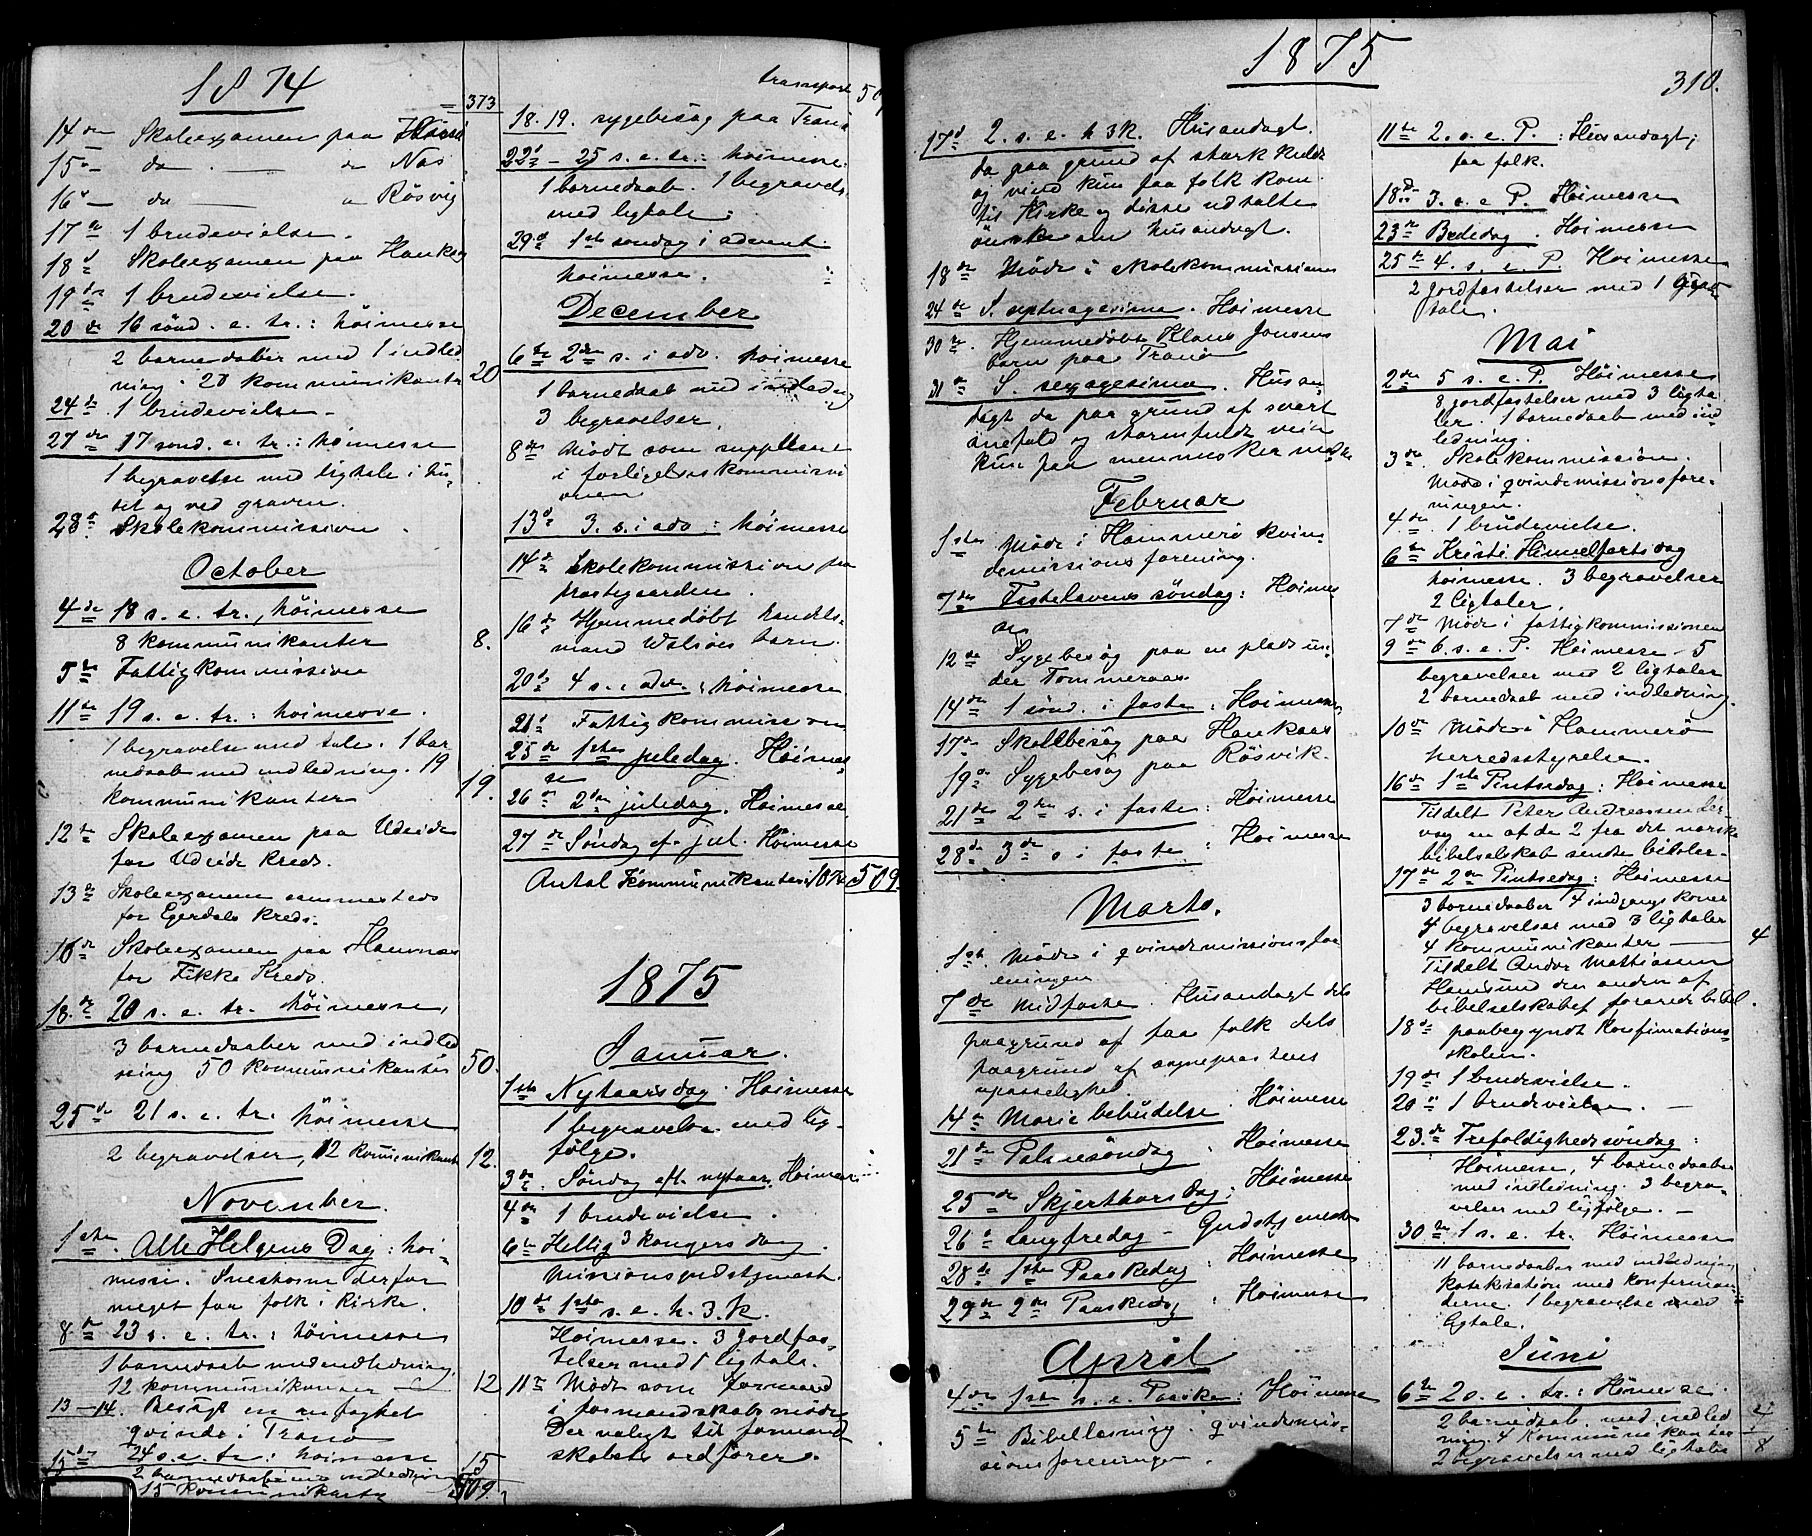 1874
= 373
14de Skoleexamen paa
15de do. — do Nes
16de — do — o Rösvig
17de 1 brudevielse.
18de Skoleexamen paa Haukøy
19de 1 brudevielse.
20de 16 sönd. e. tr.: höimesse
2 barnedaber med 1 indled-
ning. 20 kommunikanter 20
24de 1 brudevielse.
27de 17 sönd. e. tr.: höimesse
1 begravelse med ligtale i hu-
set og ved graven.
28de Skolekommission.
October
4de 18 s. e. tr., höimesse
8 kommunikanter 8.
5te Fattigkommission
11te 19 s. e. tr.: höimesse.
1 begravelse med tale. 1 bar
nedaab med indledning. 19
kommunikanter 19.
12te Skoleexamen paa Udeide
for Udeide Kreds.
13de Skoleexamen sammesteds
for Egerdals Kreds.
16de Skoleexamen paa Hamnes
for Fikke Kreds.
18de 20 s. e. tr. höimesse,
3 barnedaaber med indled
ning 50 kommunikanter 50.
25de 21 s. e. tr. höimesse
2 begravelser, 12 kommunikant 12.
November.
1ste Alle Helgens Dag: höi-
messe. Snestorm derfor
meget faa folk i kirke.
8de 23 s. e. tr.: höimesse
1 barnedaab med indledning,
12 kommunikanter — 12
13–14. Besögt en
qvinde i Tranö
15de 24 s. e. tr.: höimesse
2 barnedaab med indledning
15 kommunikanter 15
509.
transport 509
18. 19. sygebesög paa Tranö
22de – 25 s. e. tr.: höimesse.
1 barnedaab. 1 begravelse
med ligtale.
29de 1ste söndag i advent.
höimesse.
December
6te 2den s. i adv. höimesse
1 barnedaab med indledning
3 begravelser.
8de Mödt som suppleant
i forligelseskommissi
onen
13de 3. s. i adv.: höimesse
14de Skolekommission paa
prestegaarden.
16de Hjemmedöbt handels-
mand Walsöes barn.
20de 4 s. i adv.: höimesse
21de Fattigkommission
25de 1ste juledag. Höimes-
se
26de 2den juledag. Höimesse
27de Söndag ef. jul. Höimesse
Antal Kommunikanter 509.
1875
Januar.
1ste Nytaarsdag. Höimesse
1 begravelse med lig-
fölge.
3de. Söndag eft. nytaar. Höimesse
4de 1 brudevielse.
6te Hellig 3 kongers dag.
Missionsgudstjeneste.
10de 1ste s. e. h. 3. K.
Höimesse. 3 jordfæs-
telser med 1 ligtale.
11te Mödt som formand
i formandskabsmöde
Der valgt til formand
skabets ordförer.
1875
310.
17de 2. s. e. h 3K. Husandagt.
da paa grund af stærk kulde
og vind kun faa folk kom
til Kirke og disse udtalte
önske om husandagt.
18de Möde i skolekommissionen
24de S. septuagesima. Höimesse
30te. Hjemmedöbt Klaus Jensens
barn paa Tranö
31te S. sexagesima. Husan-
dagt da paa grund af svært
snefald og stormfuldt veir
kun faa mennesker mødte
Februar
1ste Möde i Hammerö kvin-
demissionsforening.
7de Fastelavens söndag: Höimes
se
12te Sygebesög paa en plads un-
der Tommeraas.
14de 1 sönd. i faste: Höimesse
17de Skolebesög paa Haukaas
19de Sygebesög paa Rösvik.
21de 2den s. i faste: Höimesse
28de 3de s i faste: Höimesse
Marts.
1ste. Möde i qvindemissionsfor
eningen
7de Midfaste. Husandagt dels
paagrund af faa folk dels
paagrund af sognepræstens
upasselighed.
14de Marie bebudelse. Höimesse
21de Palmesöndag. Höimesse
25de Skjerthorsdag: Höimesse
26de Langfredag – Gudstjeneste
28de 1ste Paaskedag: Höimesse
29de 2den Paaskedag: Höimesse
April
4de 1ste s. e. Paaske: Höimesse
5te Bibellæsning i qvindemis-
sionsforeningen.
11te 2. s. e. P.: Husandagt;
faa folk.
18de 3. s. e P. Höimesse
23de Bededag. Höimesse
25de 4. s. e. P. Höimesse
2 jordfæstelser med 1 lig-
tale.
Mai
2den 5 s. e. P. Höimesse
8 jordfæstelser med 3 ligta-
ler. 1 barnedaab med ind
ledning.
3de. Skolekommission.
Möde i qvindemissionsfore-
ningen.
4de 1 brudevielse.
6te Kristi Himmelfartsdag
höimesse. 3 begravelser
2 ligtaler.
7de Möde i fattigkommissionen
9de 6. s. e. P. Höimesse – 5
begravelser med 2 ligtaler
2 barnedaab med indledning.
10de Möde i Hammerö
herredsstyrelse.
16de 1ste Pintsedag: Höimesse
Tildelt Peter Andreassen Ler-
vag en af de 2 fra det norske
bibelselskab sendte bibler.
17de 2den Pintsedag: Höimesse
3 barnedaaber 4 indgangskoner
4 begravelser med 3 ligtaler
4 kommunikanter — 4
Tildelt Andor Mathiasen
Hamsund den anden af
bibelselskabet forærede bibel.
18de paabegyndt Konfirmations-
skolen.
19de 1 brudevielse.
20de 1 brudevielse. —
23de Trefoldighedssöndag:
Höimesse, 4 barnedaaber
med indledning. 3 begra-
velser med ligfölge. —
30te 1 s. e. tr. Höimesse
11 barnedaaber med indledning
katekisation med konferman-
derne. 1 begravelse med
ligtale.
Juni
6te 2 s. e. tr.: Höimesse.
2 barnedaab. med indled
ning. 4 kommunikanter 4
2 begravelser med ligtale 8